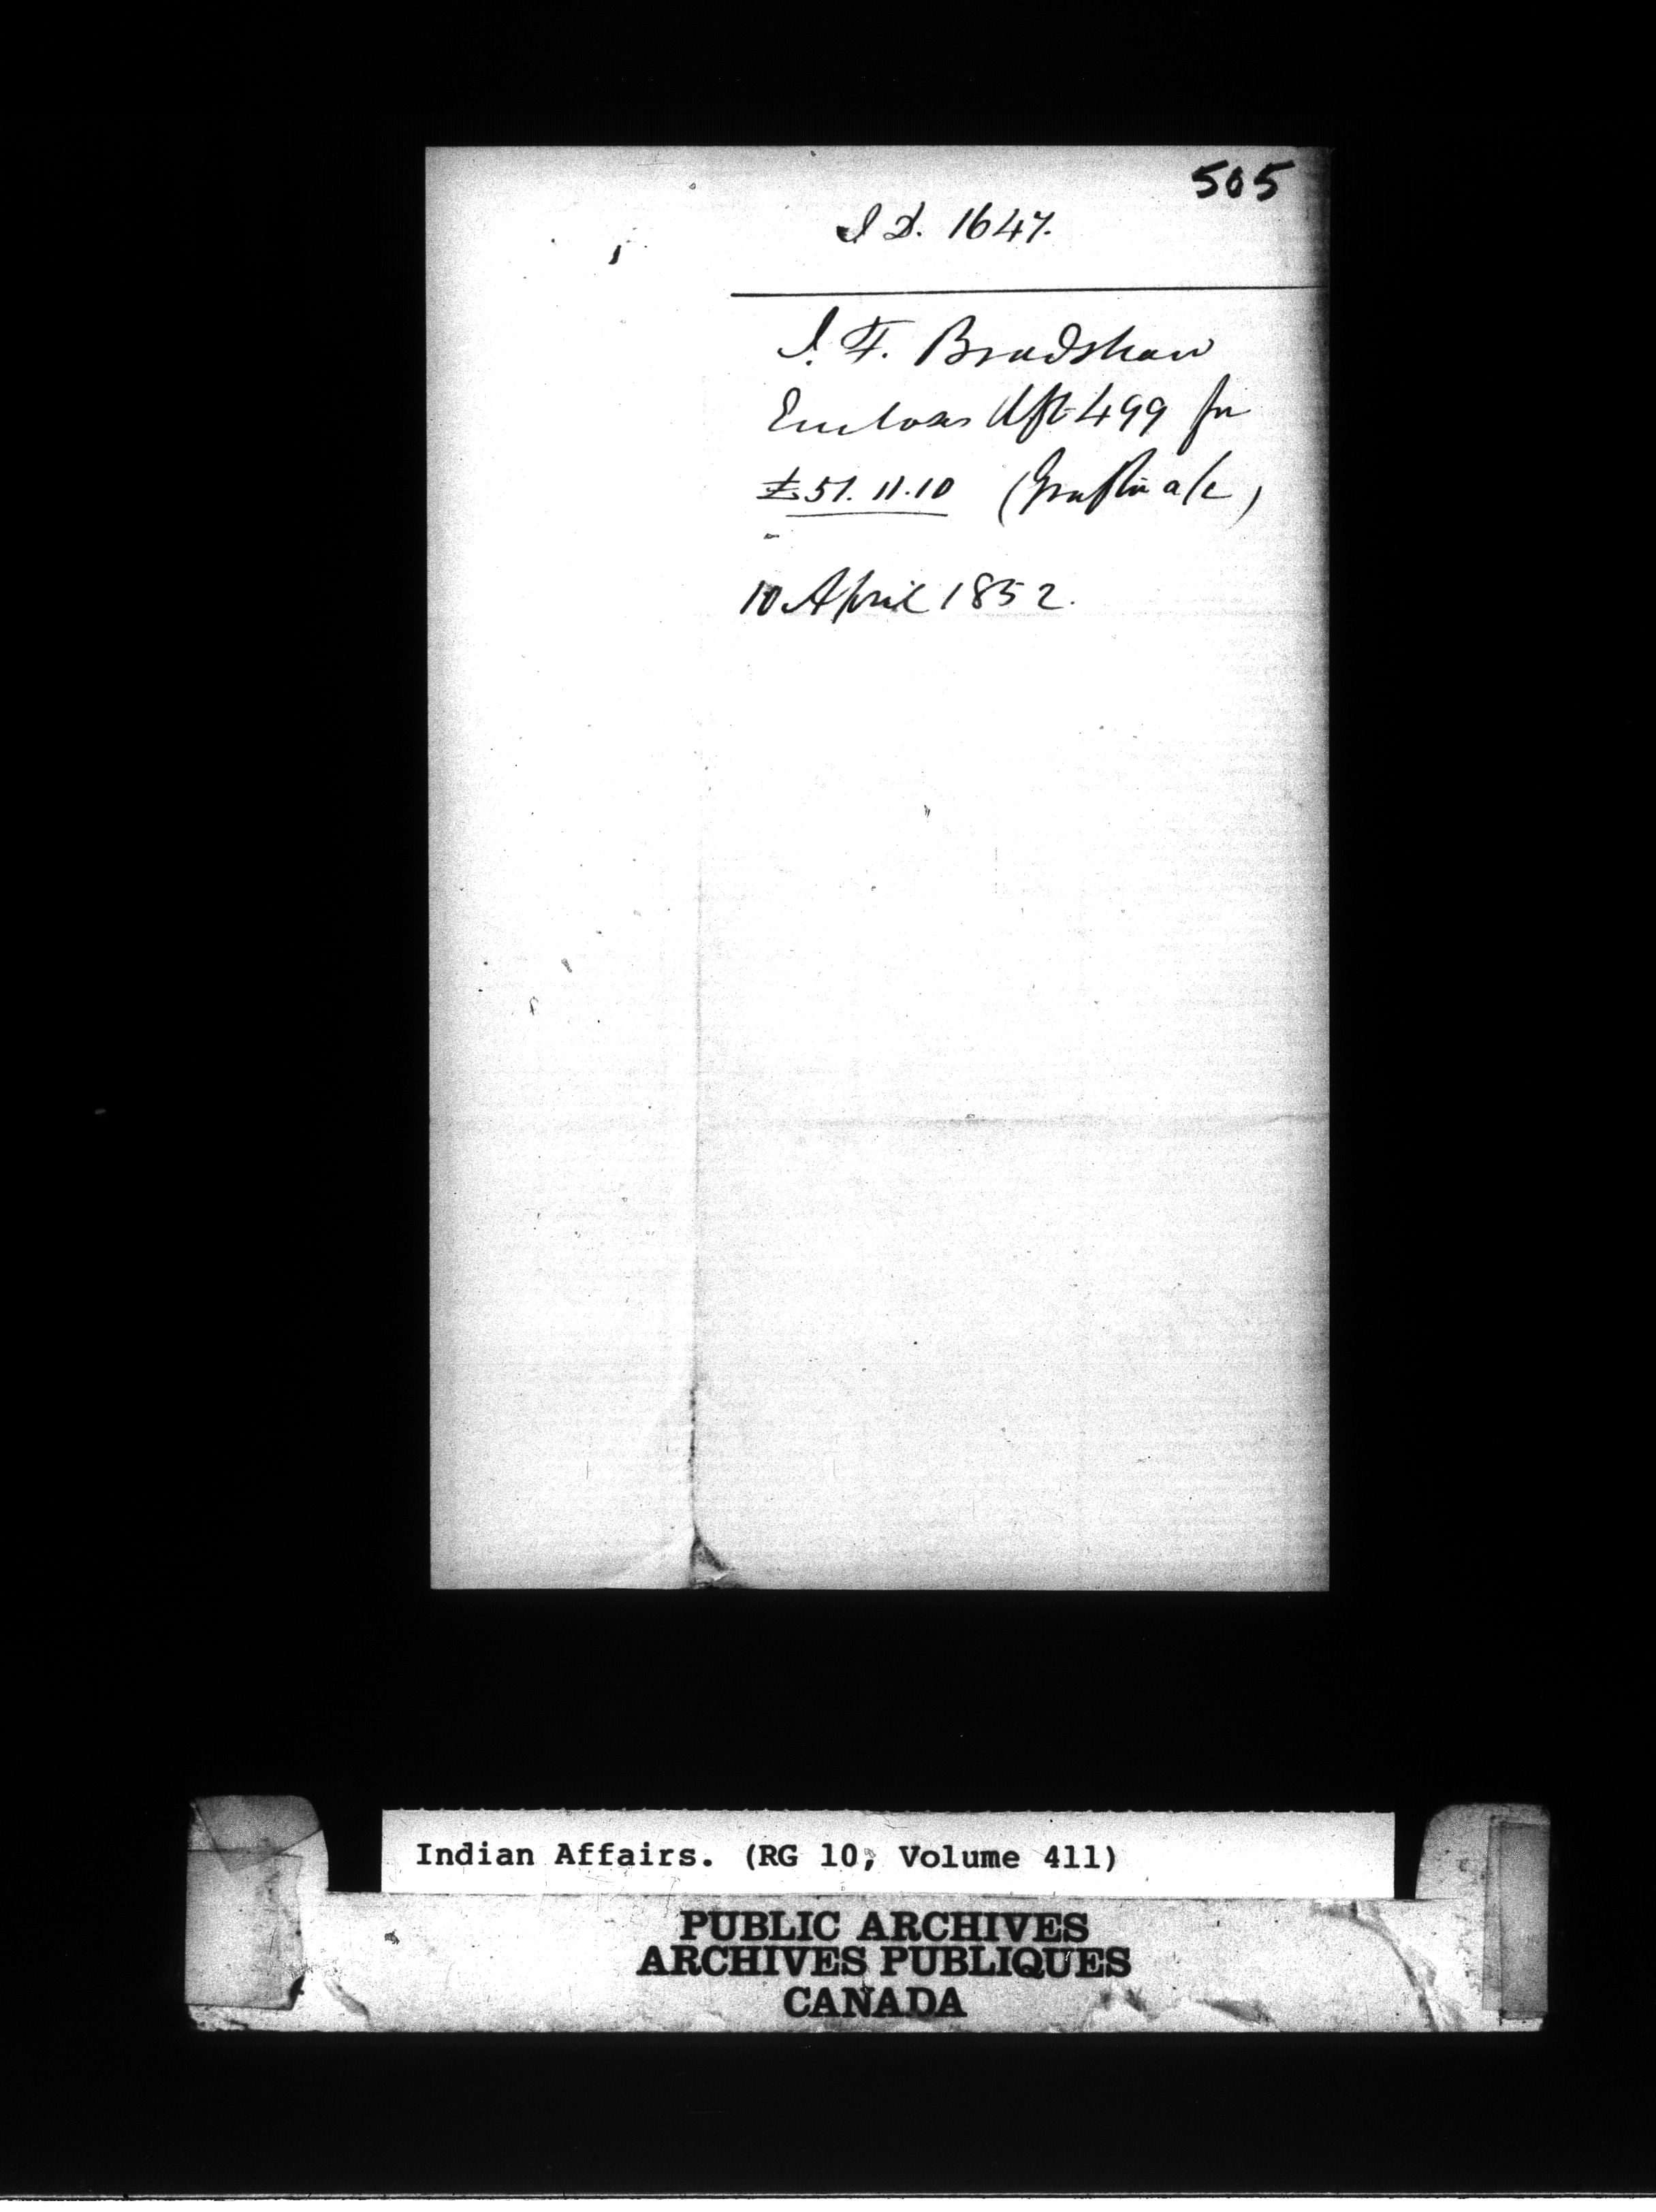 505
I D. 1647.
I. F. Bradshaw
Encloses Dft 499 for
£51. 11. 10 ( a/c )
10 April 1852.
Indian Affairs. (RG 10, Volume 411)
PUBLIC ARCHIVES
ARCHIVES PUBLIQUES
CANADA